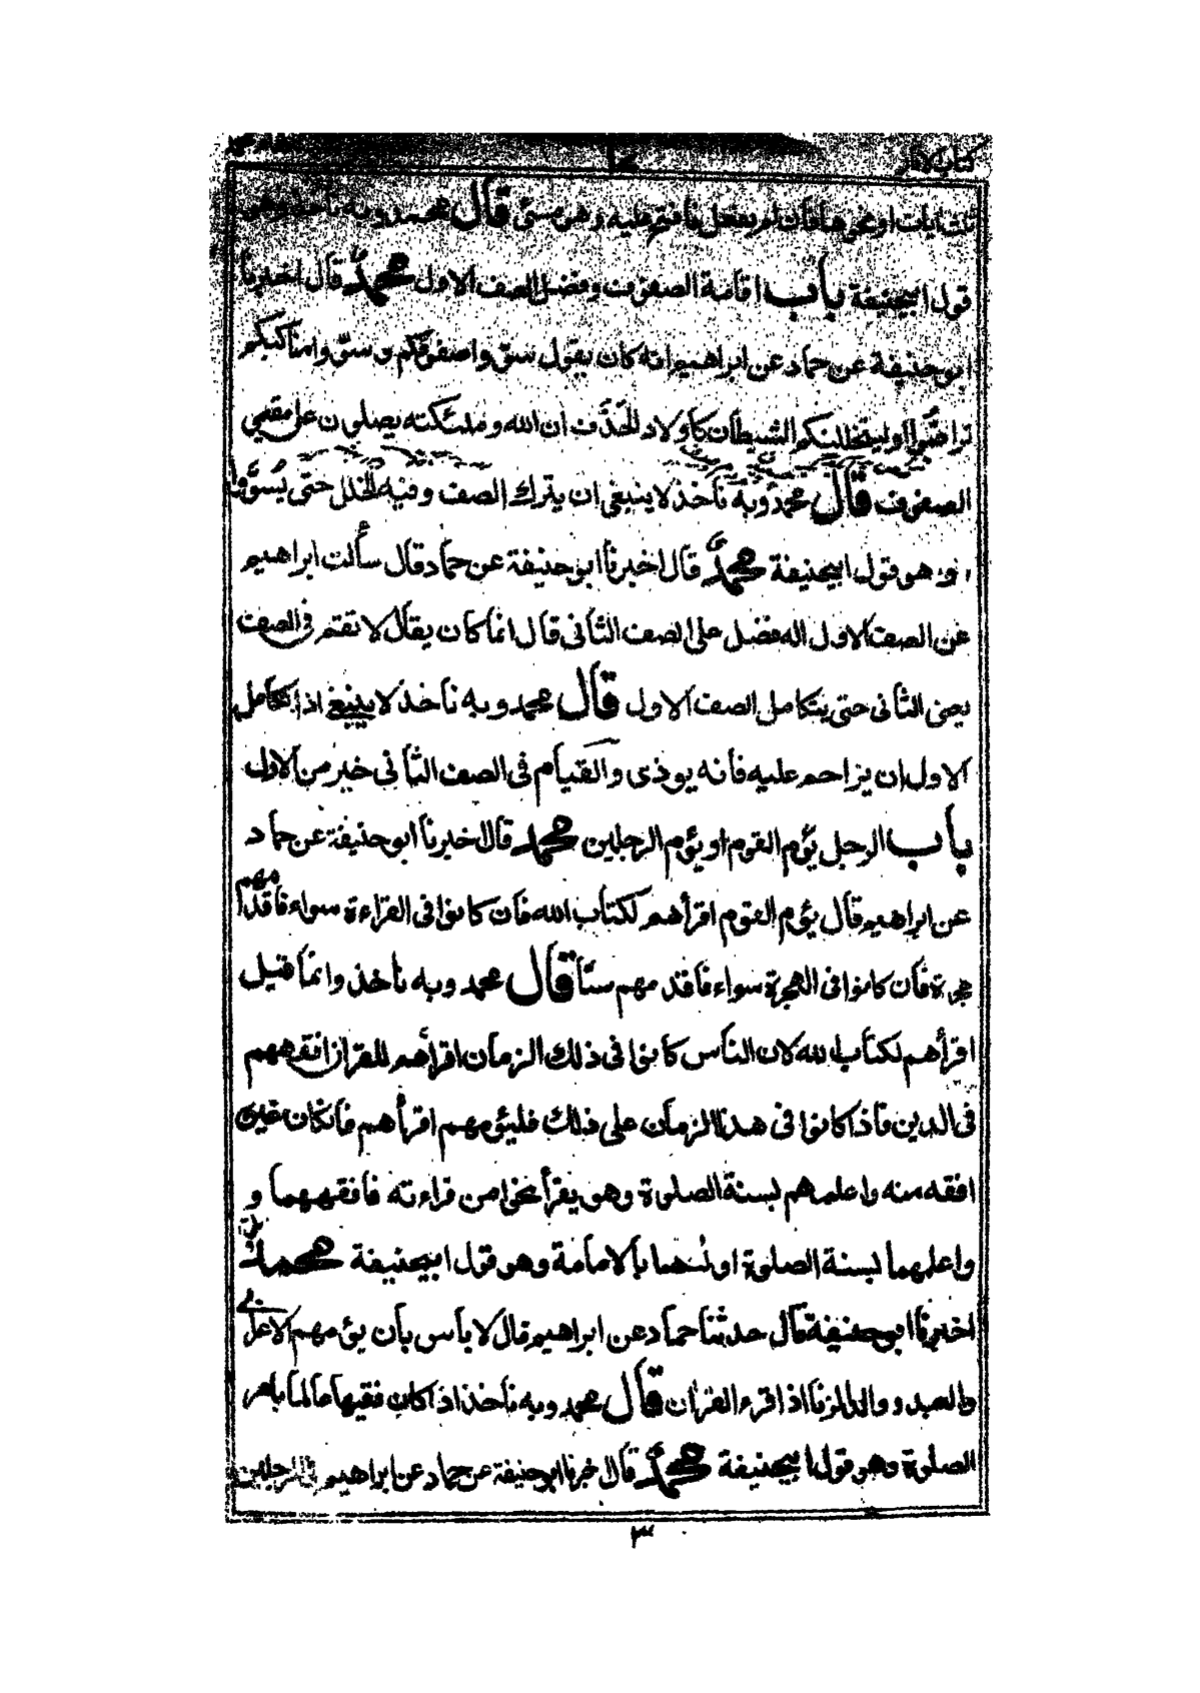 كتاب الآثار
ثلث ايات او نحوها فان لم يفعل فافتح عليه وهو مسئ قال محمد وبه ناخذ وهو
قول ابيحنيفة باب اقامة الصفوف وفضل الصف الاول محمدٌ قال اخبرنا
ابو حنيفة عن حماد عن ابراهيم انه كان يقول سوّوا صفوفكم وسوّوا مناكبكم
تراصّوا او ليتخللنكم الشيطان كأولاد الحَذَف ان الله وملئكته يصلون على مقيمي
الصفوف قال محمد وبه ناخذ لا ينبغى ان يترك الصف وفيه الخلل حتى يُسوَّوا
وهو قول ابيحنيفة محمدٌ قال اخبرنا ابو حنيفة عن حماد قال سألت ابراهيم
عن الصف الاول اله فضل على الصف الثانى قال انما كان يقال لا تقم فى الصف
يعنى الثانى حتى يتكامل الصف الاول قال محمد وبه ناخذ لا ينبغى اذا تكامل
الاول ان يزاحم عليه فانه يوذى والقيام فى الصف الثانى خير من الاول
باب الرجل يؤم القوم او يؤم الرجلين محمد قال اخبرنا ابو حنيفة عن حماد
عن ابراهيم قال يؤم القوم اقرأهم لكتاب الله فان كانوا فى القراءة سواء فاقدمهم
هجرة فان كانوا فى الهجرة سواء فاقدمهم سنّا قال محمد وبه ناخذ وانما قيل
اقرأهم لكتاب الله لان الناس كانوا فى ذلك الزمان اقرأهم للقران افقههم
فى الدين فاذا كانوا فى هذا الزمان على ذلك فليؤمهم اقرأهم فان كان غيره
افقه منه واعلمهم بسنة الصلوة وهو يقرأ نحوا من قراءته فافقههما و
واعلمهما بسنة الصلوة اولٰهما بالامامة وهو قول ابيحنيفة محمد قال
اخبرنا ابو حنيفة قال حدثنا حماد عن ابراهيم قال لا باس بان يؤمهم الاعرابى
والعبد وولد الزنا اذا قرء القران قال محمد وبه ناخذ اذا كان فقيها عالما بامر
الصلوة وهو قول ابيحنيفة محمدٌ قال اخبرنا ابو حنيفة عن حماد عن ابراهيم فى الرجلين
٣